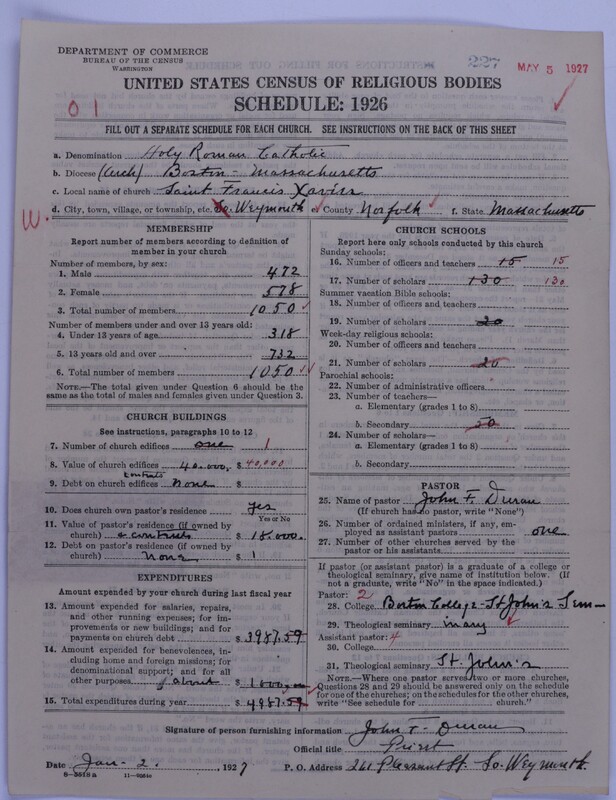 DEPARTMENT OF COMMERCE
BUREAU OF THE CENSUS
WASHINGTON
227
MAY 5 1927
UNITED STATES CENSUS OF RELIGIOUS BODIES
SCHEDULE: 1926
0 1
FILL OUT A SEPARATE SCHEDULE FOR EACH CHURCH. SEE INSTRUCTIONS ON THE BACK OF THIS SHEET
a. Denomination Holy Roman Catholic
b. Diocese (Arch) Boston - Massachusetts
c. Local name of church Saint Francis Xavier
W. d. City, town, village, or township, etc. So. Weymouth e. County Norfolk f. State Massachusetts
MEMBERSHIP
Report number of members according to definition of member in your church
Number of members, by sex:
1. Male 472
2. Female 578
3. Total number of members 1050
Number of members under and over 13 years old:
4. Under 13 years of age 318
5. 13 years old and over 732
6. Total number of members 1050
NOTE.—The total given under Question 6 should be the same as the total of males and females given under Question 3.
CHURCH BUILDINGS
See instructions, paragraphs 10 to 12
7. Number of church edifices one 1
8. Value of church edifices 40.000. $ 40,000
contents
9. Debt on church edifices none $
10. Does church own pastor's residence? yes
Yes or No
11. Value of pastor's residence (if owned by
church) & contents $ 18.000.
12. Debt on pastor's residence (if owned by
church) none $
EXPENDITURES
Amount expended by your church during last fiscal year
13. Amount expended for salaries, repairs,
and other running expenses; for im-
provements or new buildings; and for
payments on church debt $ 3987.59
14. Amount expended for benevolences,
including home and foreign missions; for
denominational support; and for all
other purposes about $ 1000.00
15. Total expenditures during year $ 4987.59
CHURCH SCHOOLS
Report here only schools conducted by this church
Sunday schools:
16. Number of officers and teachers 15 15
17. Number of scholars 130 130
Summer vacation Bible schools:
18. Number of officers and teachers
19. Number of scholars 20
Week-day religious schools:
20. Number of officers and teachers
21. Number of scholars 20
Parochial schools:
22. Number of administrative officers
23. Number of teachers—
a. Elementary (grades 1 to 8)
b. Secondary 50
24. Number of scholars—
a. Elementary (grades 1 to 8)
b. Secondary
PASTOR
25. Name of pastor John F. Duran
(If church has no pastor, write "None")
26. Number of ordained ministers, if any, em-
ployed as assistant pastors one
27. Number of other churches served by the
pastor or his assistants
If pastor (or assistant pastor) is a graduate of a college or
theological seminary, give name of institution below. (If
not a graduate, write "No" in the space indicated.)
Pastor: 2
28. College Boston College - St John's Sem-
29. Theological seminary inary
Assistant pastor: 4
30. College
31. Theological seminary St. John's
NOTE.—Where one pastor serves two or more churches,
Questions 28 and 29 should be answered only on the schedule
for one of the churches; on the schedules for the other churches,
write "See schedule for church."
Signature of person furnishing information John F. Duran
Official title Priest
Date Jan- 2. 1927 P. O. Address 261 Pleasant St. So. Weymouth.
8-5518 a